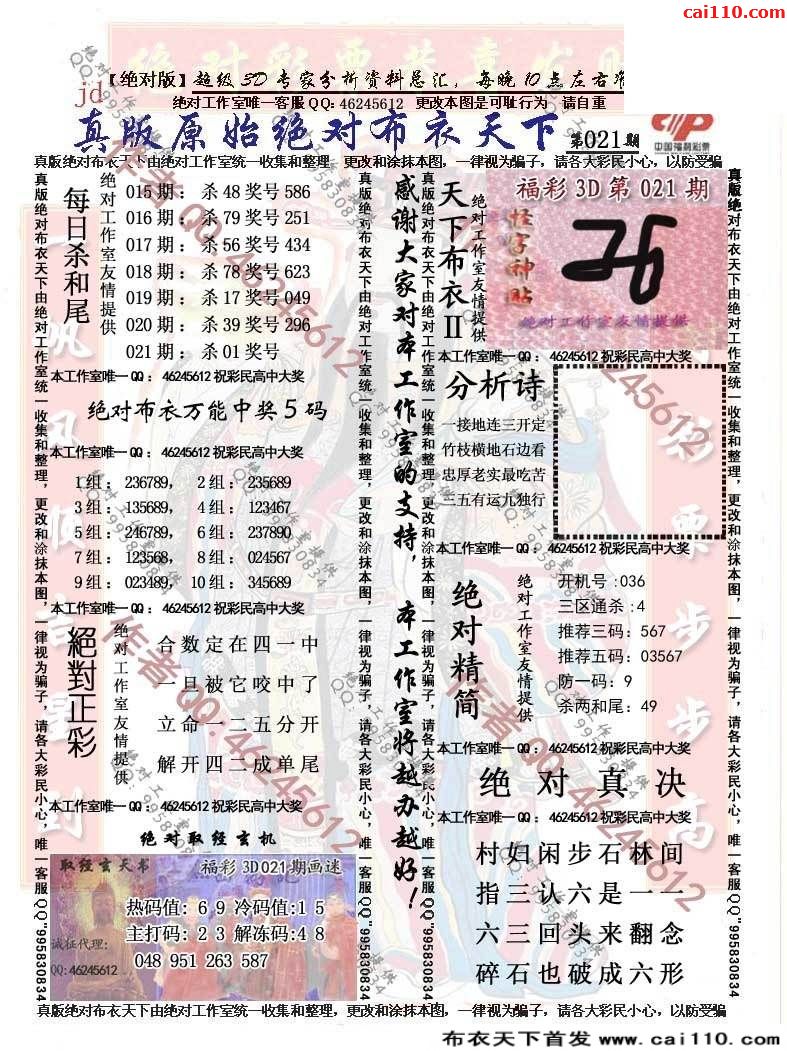 cai110.com
【绝对版】超级3D专家分析资料总汇，每晚10点左右准
jd
绝对工作室唯一客服QQ:46245612 更改本图是可耻行为 请自重
真版原始绝对布衣天下 第021期
中国福利彩票
真版绝对布衣天下由绝对工作室统一收集和整理，更改和涂抹本图，一律视为骗子，请各大彩民小心，以防受骗
每日杀和尾
绝对工作室友情提供
015期：杀48奖号586
016期：杀79奖号251
017期：杀56奖号434
018期：杀78奖号623
019期：杀17奖号049
020期：杀39奖号296
021期：杀01奖号
本工作室唯一QQ：46245612祝彩民高中大奖
绝对布衣万能中奖5码
本工作室唯一QQ：46245612祝彩民高中大奖
1组：236789，2组：235689
3组：135689，4组：123467
5组：246789，6组：237890
7组：123568，8组：024567
9组：023489，10组：345689
本工作室唯一QQ：46245612祝彩民高中大奖
絕對正彩
绝对工作室友情提供
合数定在四一中
一旦被它咬中了
立命一二五分开
解开四二成单尾
本工作室唯一QQ：46245612祝彩民高中大奖
绝对取经玄机
取经玄天书
福彩3D021期画迷
热码值：69冷码值:15
主打码：23解冻码:48
048 951 263 587
诚征代理:
QQ:46245612
感谢大家对本工作室的支持，本工作室将越办越好！
天下布衣II
绝对工作室友情提供
福彩3D第021期
怪字神贴
绝对工作室友情提供
本工作室唯一QQ：46245612祝彩民高中大奖
分析诗
一接地连三开定
竹枝横地石边看
忠厚老实最吃苦
二五有运九独行
本工作室唯一QQ：46245612祝彩民高中大奖
绝对精简
绝对工作室友情提供
开机号:036
三区通杀:4
推荐三码:567
推荐五码:03567
防一码:9
杀两和尾:49
本工作室唯一QQ：46245612祝彩民高中大奖
绝对真决
本工作室唯一QQ：46245612祝彩民高中大奖
村妇闲步石林间
指三认六是一一
六三回头来翻念
碎石也破成六形
真版绝对布衣天下由绝对工作室统一收集和整理，更改和涂抹本图，一律视为骗子，请各大彩民小心，唯一客服QQ"995830834
真版绝对布衣天下由绝对工作室统一收集和整理，更改和涂抹本图，一律视为骗子，请各大彩民小心，唯一客服QQ"995830834
真版绝对布衣天下由绝对工作室统一收集和整理，更改和涂抹本图，一律视为骗子，请各大彩民小心，唯一客服QQ"995830834
真版绝对布衣天下由绝对工作室统一收集和整理，更改和涂抹本图，一律视为骗子，请各大彩民小心，唯一客服QQ"995830834
真版绝对布衣天下由绝对工作室统一收集和整理，更改和涂抹本图，一律视为骗子，请各大彩民小心，以防受骗
布衣天下首发 www.cai110.com
作者QQ:46245612